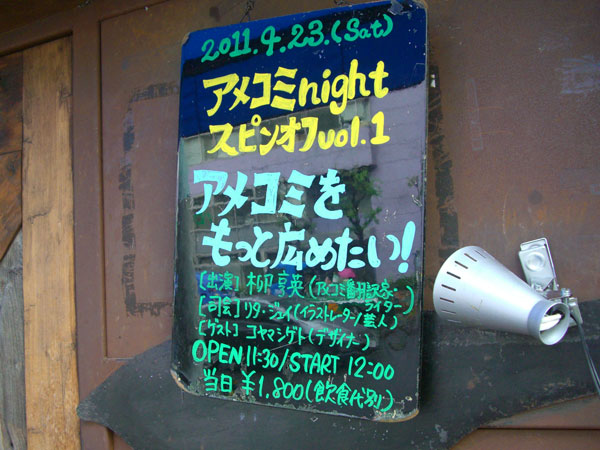 2011.4.23.(Sat)
アメコミnight
スピンオフvol.1
アメコミを
もっと広めたい!
[出演] 柳亨英(アメコミ翻訳家・
ライター)
[司会] リタ・ジェイ(イラストレーター/芸人)
[ゲスト] コヤマシゲト(デザイナー)
OPEN 11:30/START 12:00
当日 ¥1,800(飲食代別)